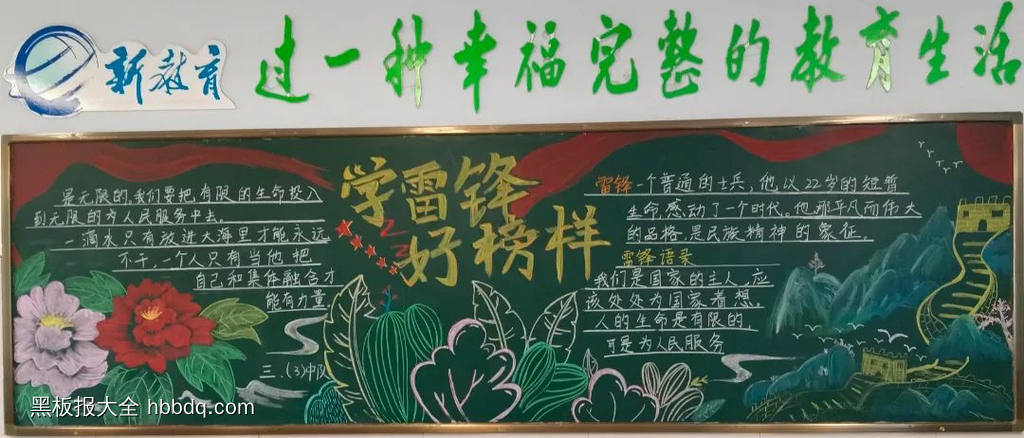 新教育
过一种幸福完整的教育生活
学雷锋
好榜样
是无限的,我们要把有限的生命投入
到无限的为人民服务中去。
一滴水只有放进大海里才能永远
不干,一个人只有当他把
自己和集体融合才
能有力量
三.(3)中队
雷锋一个普通的士兵,他以22岁的短暂
生命,感动了一个时代。他那平凡而伟大
的品格,是民族精神的象征。
雷锋语录
我们是国家的主人,应
该处处为国家着想。
人的生命是有限的,
可是为人民服务
黑板报大全 hbbdq.com